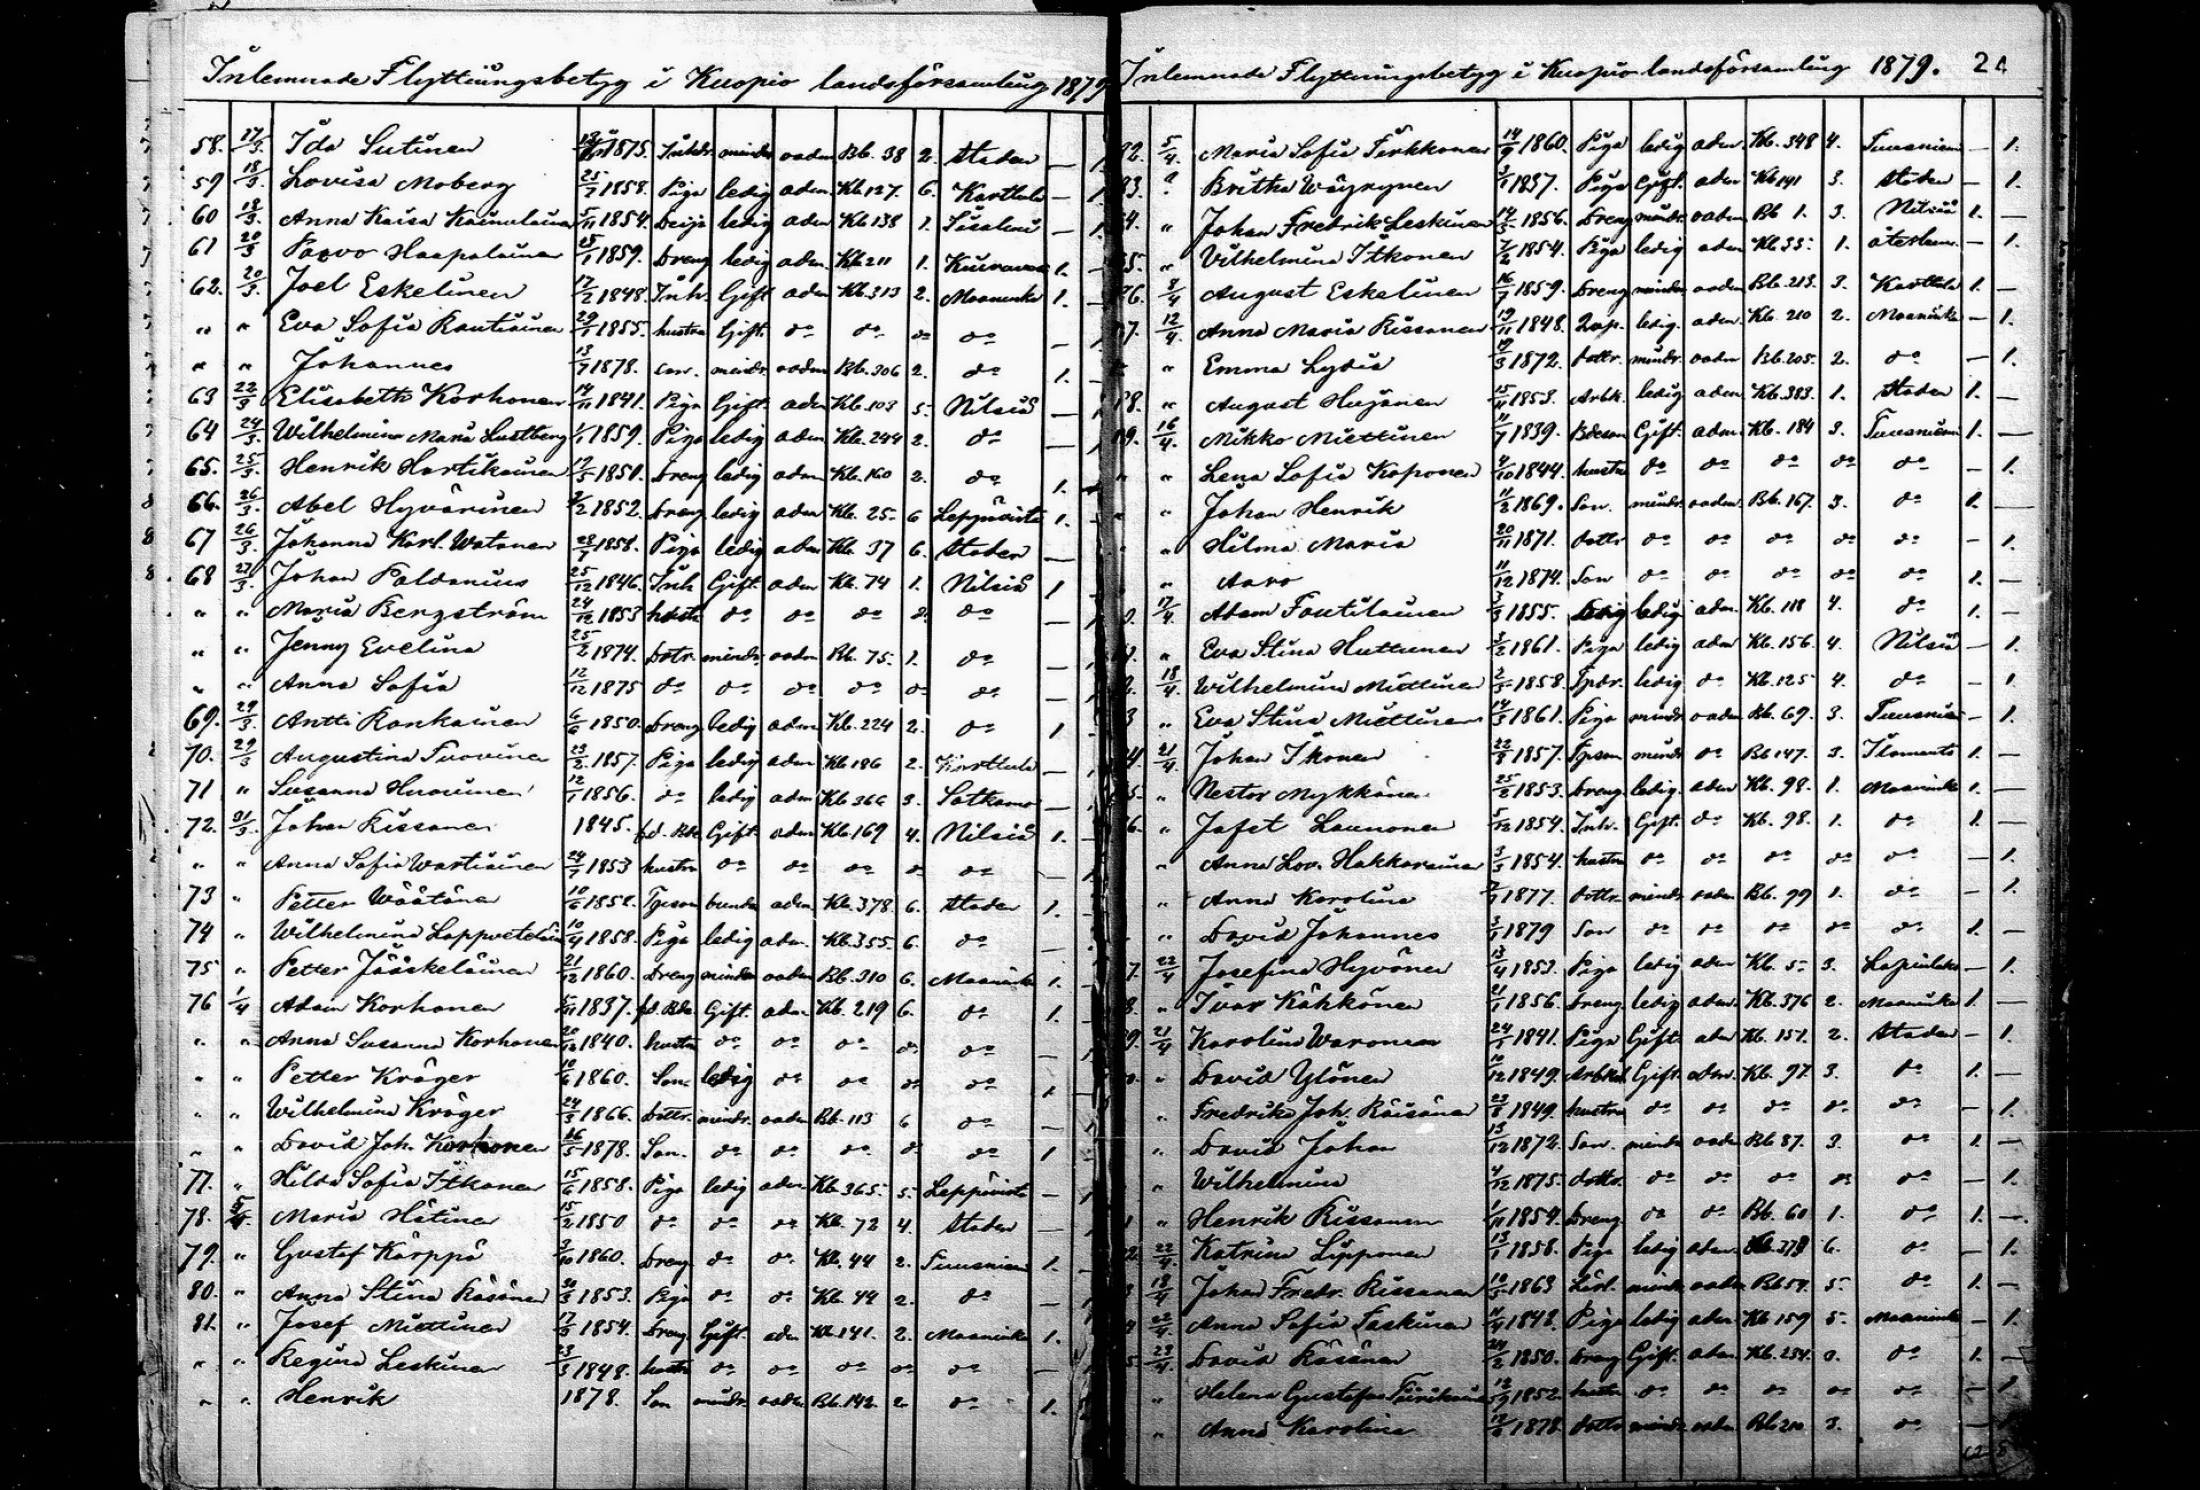 Inlemnade Flyttningsbetyg i Kuopio landsförsamling 1879
58. 17/3. Ida Sutinen 1875. mindr oadm Bb. 38 2. Staden — 1
59 18/3. Lovisa Moberg 25/7 1858. Piga ledig adm. Kb 127. 6. Karttula — 1
60 18/3. Anna Kaisa 5/11 1854. Piga ledig adm Kb 138 1. Iisalmi — 1
61 20/3 Paavo Haapalainen 25/1 1859. Dreng ledig adm. Kb. 211 1. 1. —
62. 20/3. Joel Eskelinen 17/2 1848. Inh. Gift adm Kb. 313 2. Maaninka 1. —
" " Eva Sofia Rautiainen 29/1 1855. hustru Gift. do do do do — 1
" " Johannes 13/7 1878. son. mindr. oadm Bb. 306 2. do 1.
63 22/3 Elisabeth Korhonen 14/11 1841. Piga Gift. adm Kb. 103 5. Nilsiä — 1
64 24/3. Wilhelmina Maria Lustberg 1/1 1859. Piga ledig adm Kb. 244 2. do — 1
65. 25/3. Henrik Hartikainen 19/5 1851. Dreng ledig adm Kb. 160 2. do 1.
66. 26/3. Abel Hyvärinen 2/2 1852. Dreng ledig adm Kb. 25. 6 Leppävirta 1.
67 26/3. Johanna Karl. Watanen 28/7 1858. Piga ledig adm Kb. 37 6. Staden —
68 27/3. Johan Paldanius 25/12 1846. Inh Gift. adm Kb. 74 1. Nilsiä 1
" " Maria Bergström 24/12 1853 hustr do do do do do — 1
" " Jenny Evelina 25/2 1874. Dotr. mindr. oadm Bb. 75. 1. do — 1
" " Anna Sofia 12/12 1875 do do do do do do — 1
69. 29/3. Antti Rankainen 6/6 1850. Dreng ledig adm Kb. 224 2. do 1
70. 29/3 Augustina Tuovinen 23/2 1857. Piga ledig adm Kb 186 2. Karttula —
71 " Susanna 12/1 1856. do ledig adm Kb 366 3. Sotkamo —
72. 31/3. Johan Rissanen 1845. fd. Bde Gift. adm Kb. 169 4. Nilsiä 1. —
" " Anna Sofia Wartiainen 24/7 1853 hustru do do do do do — 1
73 " Petter Väätänen 10/6 1858. adm. Kb. 378. 6. Staden 1. —
74 " Wilhelmina Lappvetelainen 10/4 1858. Piga ledig adm. Kb. 355. 6. do — 1
75 " Petter Jääskeläinen 21/12 1860. Dreng mindr oadm Bb. 310 6. Maaninka 1. —
76 1/4 Adam Korhonen 1837. fd. Bde. Gift. adm Kb. 219 6. do 1. —
" " Anna Susanna Korhonen 20/12 1840. hustru do do do do do — 1
" " Petter Kröger 10/6 1860. Son. ledig do do do do 1 —
" " Wilhelmina Kröger 24/3 1866. Dottr. mindr. oadm Bb. 113 6 do — 1
" " David Joh. Korhonen 16/5 1878. Son. do do do do do 1 —
77. " Hilda Sofia Itkonen 15/6 1858. Piga ledig adm. Kb. 365. 5. Leppävirta — 1
78. 5/4. Maria Hätinen 15/2 1850 do do do Kb. 72 4. Staden — 1
79. " Gustaf Kärppä 3/10 1860. Dreng do do Kb. 44 2. Tuusniemi 1. —
80. " Anna Stina Räsänen 30/3 1853. Piga do do Kb. 44 2. do — 1
81. " Josef Miettinen 17/3 1854. Dreng Gift. adm Kb. 141. 2. Maaninka 1.
" " Regina Leskinen 23/3 1848. hustr do do do do do — 1
" " Henrik 1878. Son mindr. oadm Bb. 142. 2 do 1.
Inlemnade Flyttningsbetyg i Kuopio landsförsamling 1879. 21
82. 5/4. Maria Sofia Pirkkonen 14/9 1860. Piga ledig adm. Kb. 348 4. Tuusniemi — 1.
83. Britha Wäyrynen 1837. Piga Gift. adm Kb 141 3. Staden — 1.
84. " Johan Fredrik Leskinen 14/3 1856. Dreng mindr. oadm Bb 1. 3. Nilsiä 1. —
85. " Vilhelmina Itkonen 7/2 1854. Piga ledig adm Kb. 35. 1. — 1.
86. 8/4 August Eskelinen 16/7 1859. Dreng mindr. oadm Bb. 213. 3. Karttula 1. —
87. 12/4. Anna Maria Rissanen 19/11 1848. ledig. adm. Kb. 210 2. Maaninka — 1.
" Emma Lydia 19/3 1872. dottr. mindr. oadm Bb. 205. 2. do — 1.
88. " August Hujanen 15/11 1853. Arbk. ledig adm. Kb. 383. 1. Staden 1. —
89. 16/4. Mikko Miettinen 11/7 1839. Bdeson Gift. adm. Kb. 184 3. Tuusniemi 1. —
" " Lena Sofia Koponen 4/10 1844. hustru do do do do do — 1.
" Johan Henrik 11/2 1869. Son. mindr. oadm. Bb. 167. 3. do 1. —
" Hilma Maria 20/11 1871. dottr do do do do do — 1.
" Aaro 11/12 1874. Son do do do do do 1. —
90. 17/4. Adam Tantilainen 3/3 1855. ledig adm. Kb. 118 4. do 1. —
" Eva Stina Huttunen 3/2 1861. Piga ledig adm Kb. 156. 4. Nilsiä — 1.
18/4. Wilhelmina Miettinen 2/3 1858. ledig do Kb. 125 4. do — 1.
" Eva Stina Miettinen 14/3 1861. Piga mindr oadm Bb. 69. 3. Tuusniemi — 1.
21/4. Johan Ikonen 22/8 1857. mindr do Bb 147. 3. Ilomants 1. —
" Nestor Mykkänen 25/2 1853. Dreng ledig. adm Kb. 98. 1. Maaninka 1. —
" Jafet Launonen 5/12 1854. Inh. Gift. do Kb. 98. 1. do 1. —
" Anna Lov. Hakkarainen 3/3 1854. hustru do do do do do — 1.
" Anna Karolina 1877. dottr. mindr oadm Bb. 99 1. do — 1.
" David Johannes 1879 Son do do do do do 1. —
22/4 Josefina Hyvönen 13/4 1853. Piga ledig adm Kb. 5 3. Lapinlaks — 1.
" Ivar Kähkönen 21/1 1856. Dreng ledig adm. Kb. 376 2. Maaninka 1. —
21/4 Karolina Waronen 24/1 1841. Piga Gift. adm Kb. 151. 2. Staden — 1.
" David Ylönen 10/12 1849. Gift. adm. Kb. 97. 3. do 1. —
" Fredrika Joh. Räisänen 23/8 1849. hustru do do do do do — 1.
" David Johan 13/12 1872. Son. mindr oadm Bb 87. 3. do 1. —
" Wilhelmina 4/12 1875. dottr. do do do do do — 1.
" Henrik Rissanen 1/11 1854. Dreng. do do Bb. 60 1. do 1. —
22/4. Katrina Lipponen 13/1 1858. Piga ledig adm. Kb. 378 6. do — 1.
18/4 Johan Fredr. Rissanen 10/5 1863 mindr oadm Bb 59. 5. do 1. —
22/4. Anna Sofia Taskinen 11/4 1848. Piga ledig adm Kb 159 5. Maaninka — 1.
23/4. David Räsänen 24/2 1850. Dreng Gift. adm. Kb. 254. do 1. —
" Helena Gustafva 12/9 1852. hustr do do do do do — 1
" Anna Karolina 1878 dottr mindr oadm Bb 210 3. do — 1